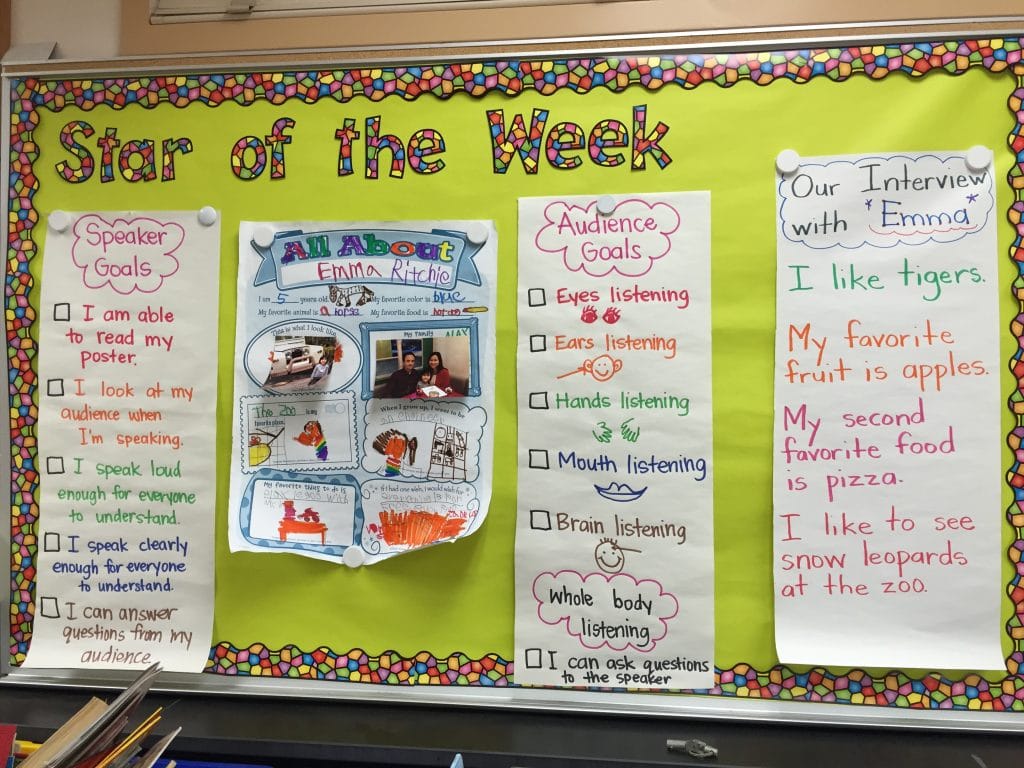 Star of the Week
Speaker
Goals
I am able
to read my
poster.
I look at my
audience when
I'm speaking.
I speak loud
enough for everyone
to understand.
I speak clearly
enough for everyone
to understand.
I can answer
questions from my
audience.
All About
Emma Ritchie
I am 5 years old. My favorite color is blue
My favorite animal is a horse My favorite food is
This is what I look like
My family
The Zoo is my
favorite place.
When I grow up, I want to be
My favorite thing to do is
If I had one wish, I would wish for
Audience
Goals
Eyes listening
Ears listening
Hands listening
Mouth listening
Brain listening
whole body
listening
I can ask questions
to the speaker
Our Interview
with *Emma*
I like tigers.
My favorite
fruit is apples.
My second
favorite food
is pizza.
I like to see
snow leopards
at the zoo.